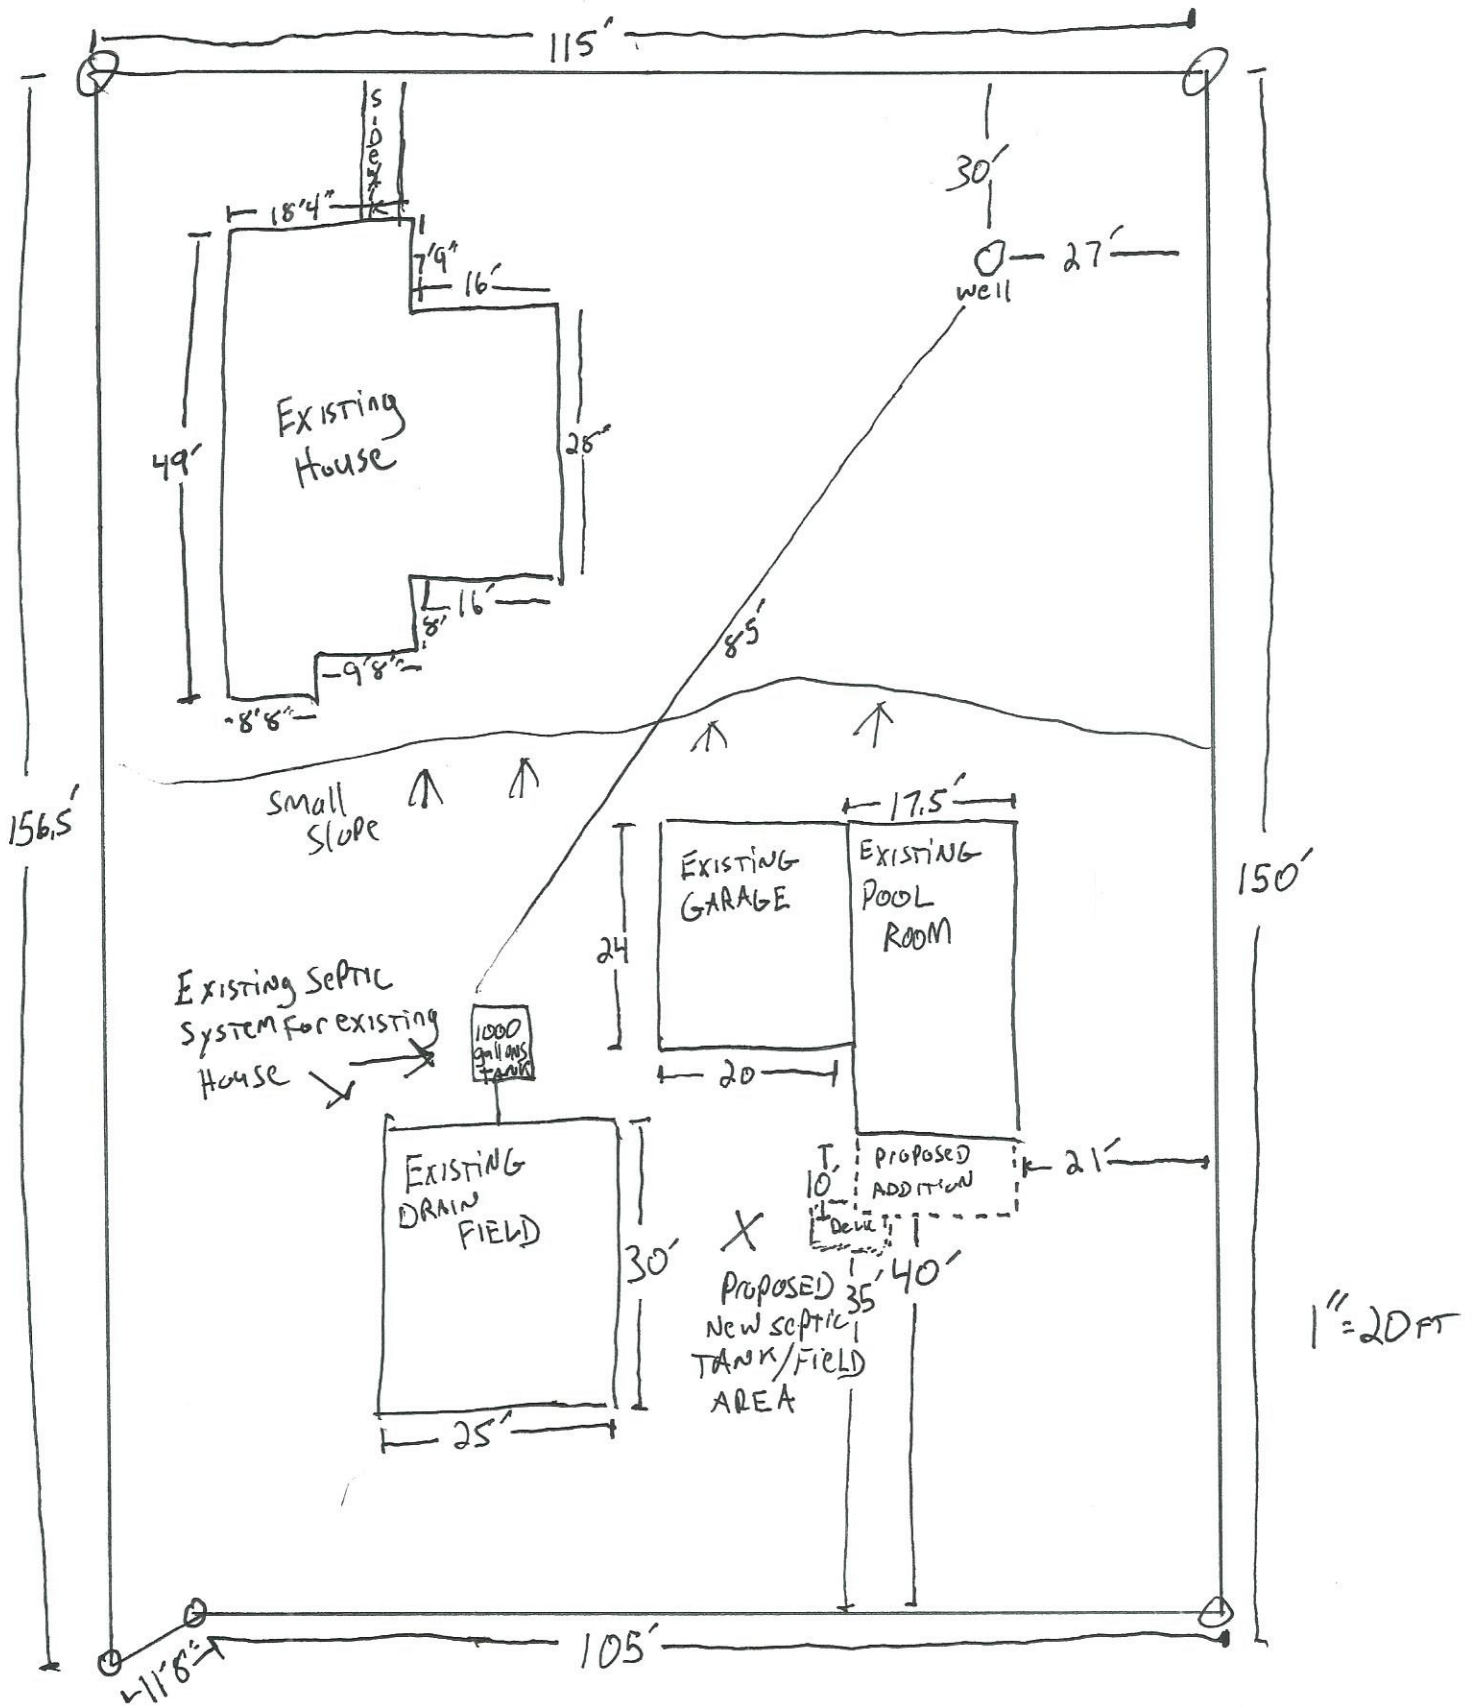 115'
SiDewalk
30'
18'4"
7'9"
16'
27'
well
Existing
House
49'
28"
16'
8'
9'8"
8'8"
85'
Small
Slope
156.5'
17.5'
EXISTING
GARAGE
EXISTING
POOL
ROOM
150'
24
20
Existing Septic
System For existing
House
1000
gallons
TANK
EXISTING
DRAIN
FIELD
30'
25'
10'
PROPOSED
ADDITION
21'
Deck
X
35'
40'
PROPOSED
New septic
TANK/FIELD
AREA
1"=20 FT
11'8"
105'